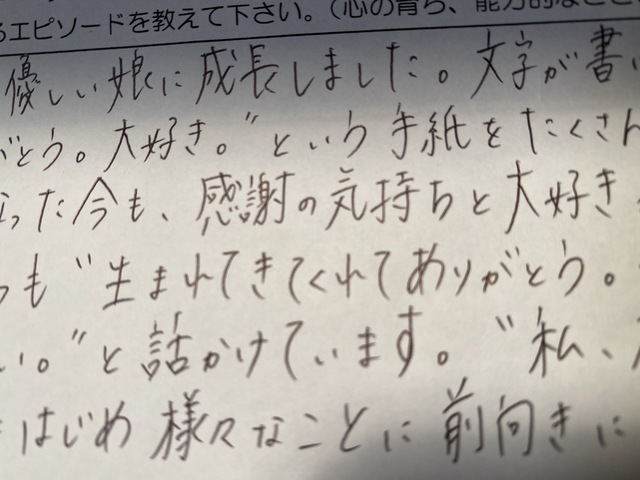 るエピソードを教えて下さい。（心の育ち、能力的なこと
優しい娘に成長しました。文字が書
がとう。大好き。”という手紙をたくさん
なった今も、感謝の気持ちと大好き
も“生まれてきてくれてありがとう。
い。”と話かけています。“私、
はじめ様々なことに前向きに